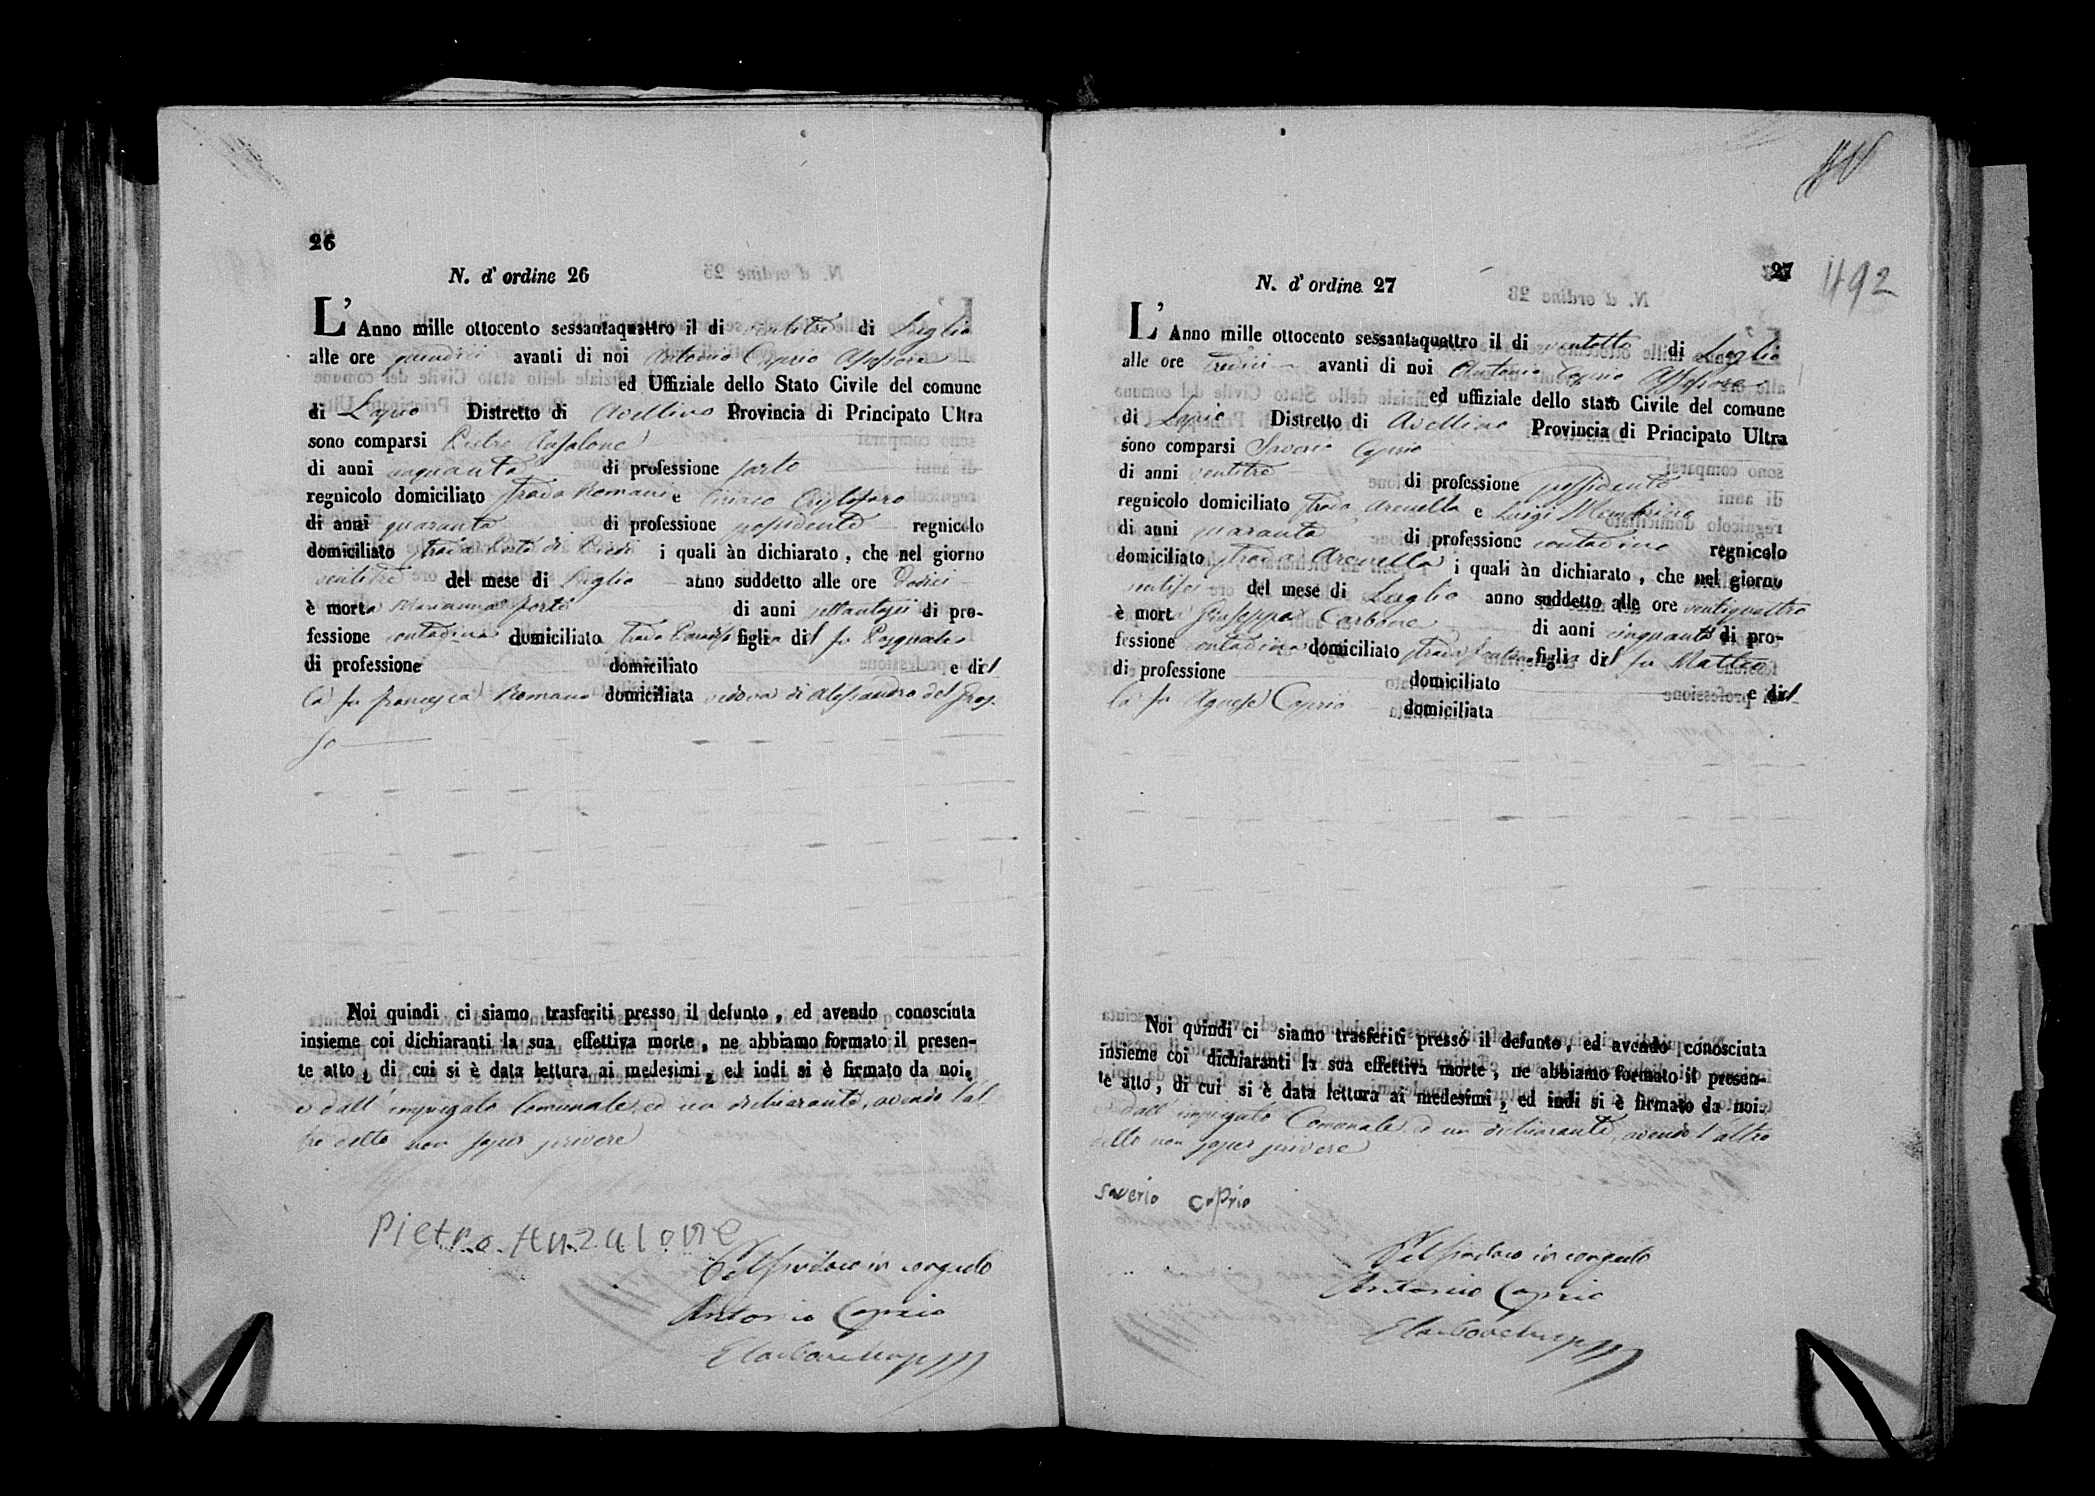 26
N. d' ordine 26
L' Anno mille ottocento sessantaquattro il di ventitre di Luglio
alle ore quindici avanti di noi Antonio Caprio Assessore
ed Uffiziale dello Stato Civile del comune
di Lapio Distretto di Avellino Provincia di Principato Ultra
sono comparsi Pietro Anzalone
di anni cinquanta di professione sarto
regnicolo domiciliato strada Romani e
di anni quaranta di professione possidente regnicolo
domiciliato strada di Piedi i quali àn dichiarato, che nel giorno
ventitre del mese di Luglio anno suddetto alle ore dodici
è morta Marianna Forte di anni settantasei di pro-
fessione contadina domiciliato strada figlia del fu Pasquale
di professione domiciliato e del
la fu Francesca Romano domiciliata vedova di Alessandro del Gros-
so
Noi quindi ci siamo trasferiti presso il defunto, ed avendo conosciuta
insieme coi dichiaranti la sua effettiva morte, ne abbiamo formato il presen-
te atto, di cui si è data lettura ai medesimi, ed indi si è firmato da noi,
e dall' impiegato Comunale, ed un dichiarante, avendo l'al
tro detto non saper scrivere
Pietro Anzalone
Pel Sindaco in congedo
Antonio Caprio
492
27
N. d' ordine 27
L' Anno mille ottocento sessantaquattro il di ventotto di Luglio
alle ore tredici avanti di noi Antonio Caprio Assessore
ed uffiziale dello stato Civile del comune
di Lapio Distretto di Avellino Provincia di Principato Ultra
sono comparsi Saverio Caprio
di anni ventitre di professione possidente
regnicolo domiciliato strada Arenella e Luigi
di anni quaranta di professione contadino regnicolo
domiciliato strada Arenella i quali àn dichiarato, che nel giorno
ventisei del mese di Luglio anno suddetto alle ore ventiquattro
è morta Giuseppa Carbone di anni cinquanta di pro-
fessione contadina domiciliato strada figlia del fu Matteo
di professione domiciliato e del
la fu Agnese Caprio domiciliata
Noi quindi ci siamo trasferiti presso il defunto, ed avendo conosciuta
insieme coi dichiaranti la sua effettiva morte, ne abbiamo formato il presen-
te atto, di cui si è data lettura ai medesimi, ed indi si è firmato da noi
dall' impiegato Comunale, ed un dichiarante, avendo l'altro
detto non saper scrivere
saverio caprio
Pel Sindaco in congedo
Antonio Caprio